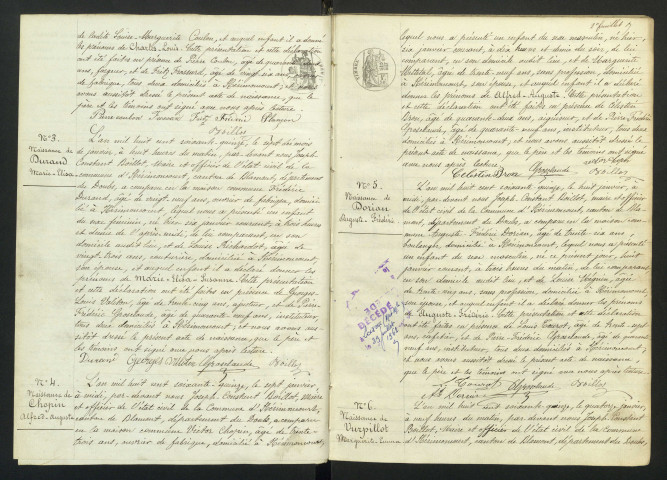 de ladite Louise-Marguerite Coulon, et auquel enfant il a donné
les prénoms de Charles-Louis. Cette présentation et cette déclaration
ont été faites en présence de Pierre Coulon, âgé de quarante
ans, forgeur, et de Fritz âgé de vingt six ans
de fabrique, tous deux domiciliés à Hérimoncourt, et nous
avons aussitôt dressé le présent acte de naissance, que le
père et les témoins ont signé avec nous après lecture
Pierre Coulon Fritz
Boillot
N° 3.
Naissance de
Durand
Marie-Elisa
L'an mil huit cent soixante quinze, le sept du mois
de janvier, à huit heures du matin, par-devant nous Joseph
Constant Boillot, Maire et officier de l'état civil de la
commune d'Hérimoncourt, canton de Blamont, département
du Doubs, a comparu en la maison commune Frédéric
Durand, âgé de vingt-neuf ans, ouvrier de fabrique, domicilié
à Hérimoncourt, lequel nous a présenté un enfant
du sexe féminin, né hier six janvier courant, à trois heures
et demie de l'après-midi, de lui comparant, en son
domicile audit lieu, et de Louise âgée de
vingt-trois ans, couturière, domiciliée à Hérimoncourt,
son épouse, et auquel enfant il a déclaré donner les
prénoms de Marie-Elisa-Suzanne. Cette présentation
et cette déclaration ont été faites en présence de Georges
Louis âgé de trente-neuf ans, et de Pierre
Frédéric Grosclaude, âgé de quarante-neuf ans, instituteur,
tous deux domiciliés à Hérimoncourt, et nous avons aussitôt
dressé le présent acte de naissance, que le père et
les témoins ont signé avec nous après lecture
Durand Georges Grosclaude Boillot
N° 4.
Naissance de
Chopin
Alfred-Auguste
L'an mil huit cent soixante-quinze, le sept janvier,
à midi, par-devant nous Joseph Constant Boillot, Maire
et officier de l'état civil de la Commune d'Hérimoncourt,
canton de Blamont, département du Doubs, a comparu
en la maison commune Victor Chopin, âgé de trente
trois ans, ouvrier de fabrique, domicilié à Hérimoncourt,
lequel nous a présenté un enfant du sexe masculin, né hier,
six janvier courant, à dix heures et demie du soir, de lui
comparant, en son domicile audit lieu, et de Marguerite
âgée de trente-neuf ans, sans profession, domiciliée
à Hérimoncourt, son épouse, et auquel enfant il a déclaré
donner les prénoms de Alfred-Auguste. Cette présentation
et cette déclaration ont été faites en présence de Célestin
Broz, âgé de quarante-deux ans, et de Pierre Frédéric
Grosclaude, âgé de quarante-neuf ans, instituteur, tous deux
domiciliés à Hérimoncourt, et nous avons aussitôt dressé le
présent acte de naissance, que le père et les témoins ont signé
avec nous après lecture
Célestin Broz Grosclaude Boillot
N° 5.
Naissance de
Dorian
Auguste-Frédéric
DÉCÉDÉ
L'an mil huit cent soixante quinze, le huit janvier, à
midi, par-devant nous Joseph-Constant Boillot, maire et officier
de l'état civil de la Commune d'Hérimoncourt, canton de Blamont,
département du Doubs, a comparu en la maison commune
Auguste Frédéric Dorian, âgé de trente-six ans,
boulanger, domicilié à Hérimoncourt, lequel nous a présenté
un enfant du sexe masculin, né ce présent jour, huit
janvier courant, à trois heures du matin, de lui comparant
en son domicile audit lieu, et de Louise âgée
de trente ans, sans profession, domiciliée à Hérimoncourt,
son épouse, et auquel enfant il a déclaré donner les prénoms
de Auguste-Frédéric. Cette présentation et cette déclaration
ont été faites en présence de Louis âgé de trente-sept
ans, et de Pierre-Frédéric Grosclaude, âgé de quarante
neuf ans, instituteur, tous deux domiciliés à Hérimoncourt,
et nous avons aussitôt dressé le présent acte de naissance,
que le père et les témoins ont signé avec nous après lecture
Grosclaude Boillot
N° 6.
Naissance de
Vurpillot
Marguerite-Emma
L'an mil huit cent soixante quinze, le quatorze janvier,
à neuf heures du matin, par-devant nous Joseph Constant
Boillot, Maire et officier de l'état civil de la Commune
d'Hérimoncourt, canton de Blamont, département du Doubs,